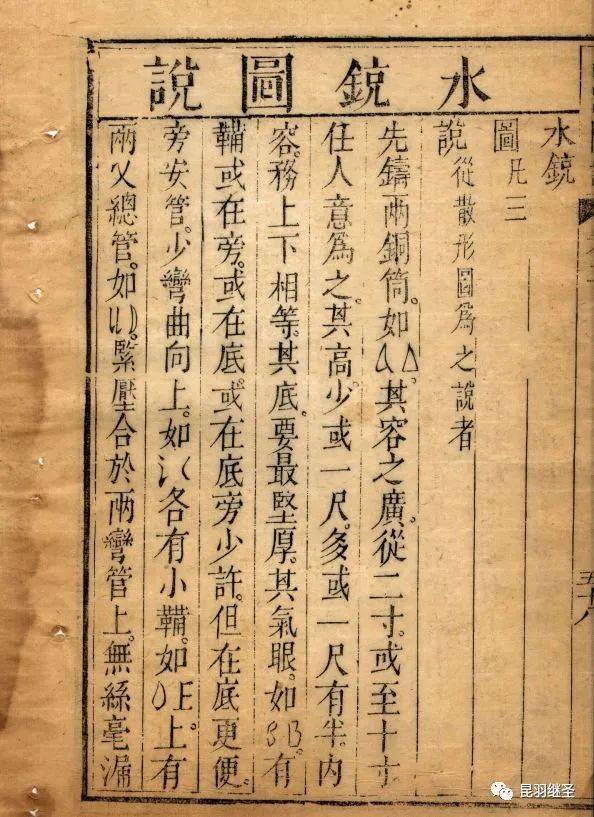 水銃圖說
水銃
圖 凡三
說 從散形圖為之說者
先鑄兩銅筒。如 其容之廣。從二寸。或至十寸
任人意為之。其高少或一尺。多或一尺有半。內
容。務上下相等。其底。要最堅厚。其氣眼。如 B。有
鞴。或在旁。或在底。或在底旁少許。但在底更便。
旁安管。少彎曲向上。如 各有小鞴。如 E。上有
兩乂總管。如 緊壓合於兩彎管上。無絲毫漏
昆羽继圣